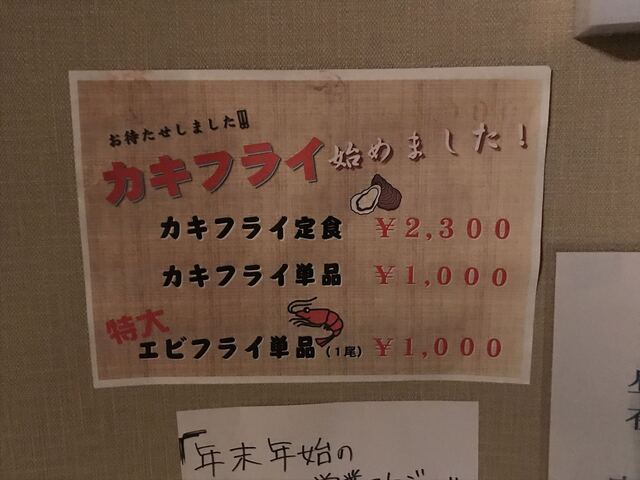 お待たせしました!!
カキフライ始めました！
カキフライ定食 ￥2,300
カキフライ単品 ￥1,000
特大
エビフライ単品（1尾）￥1,000
「年末年始の